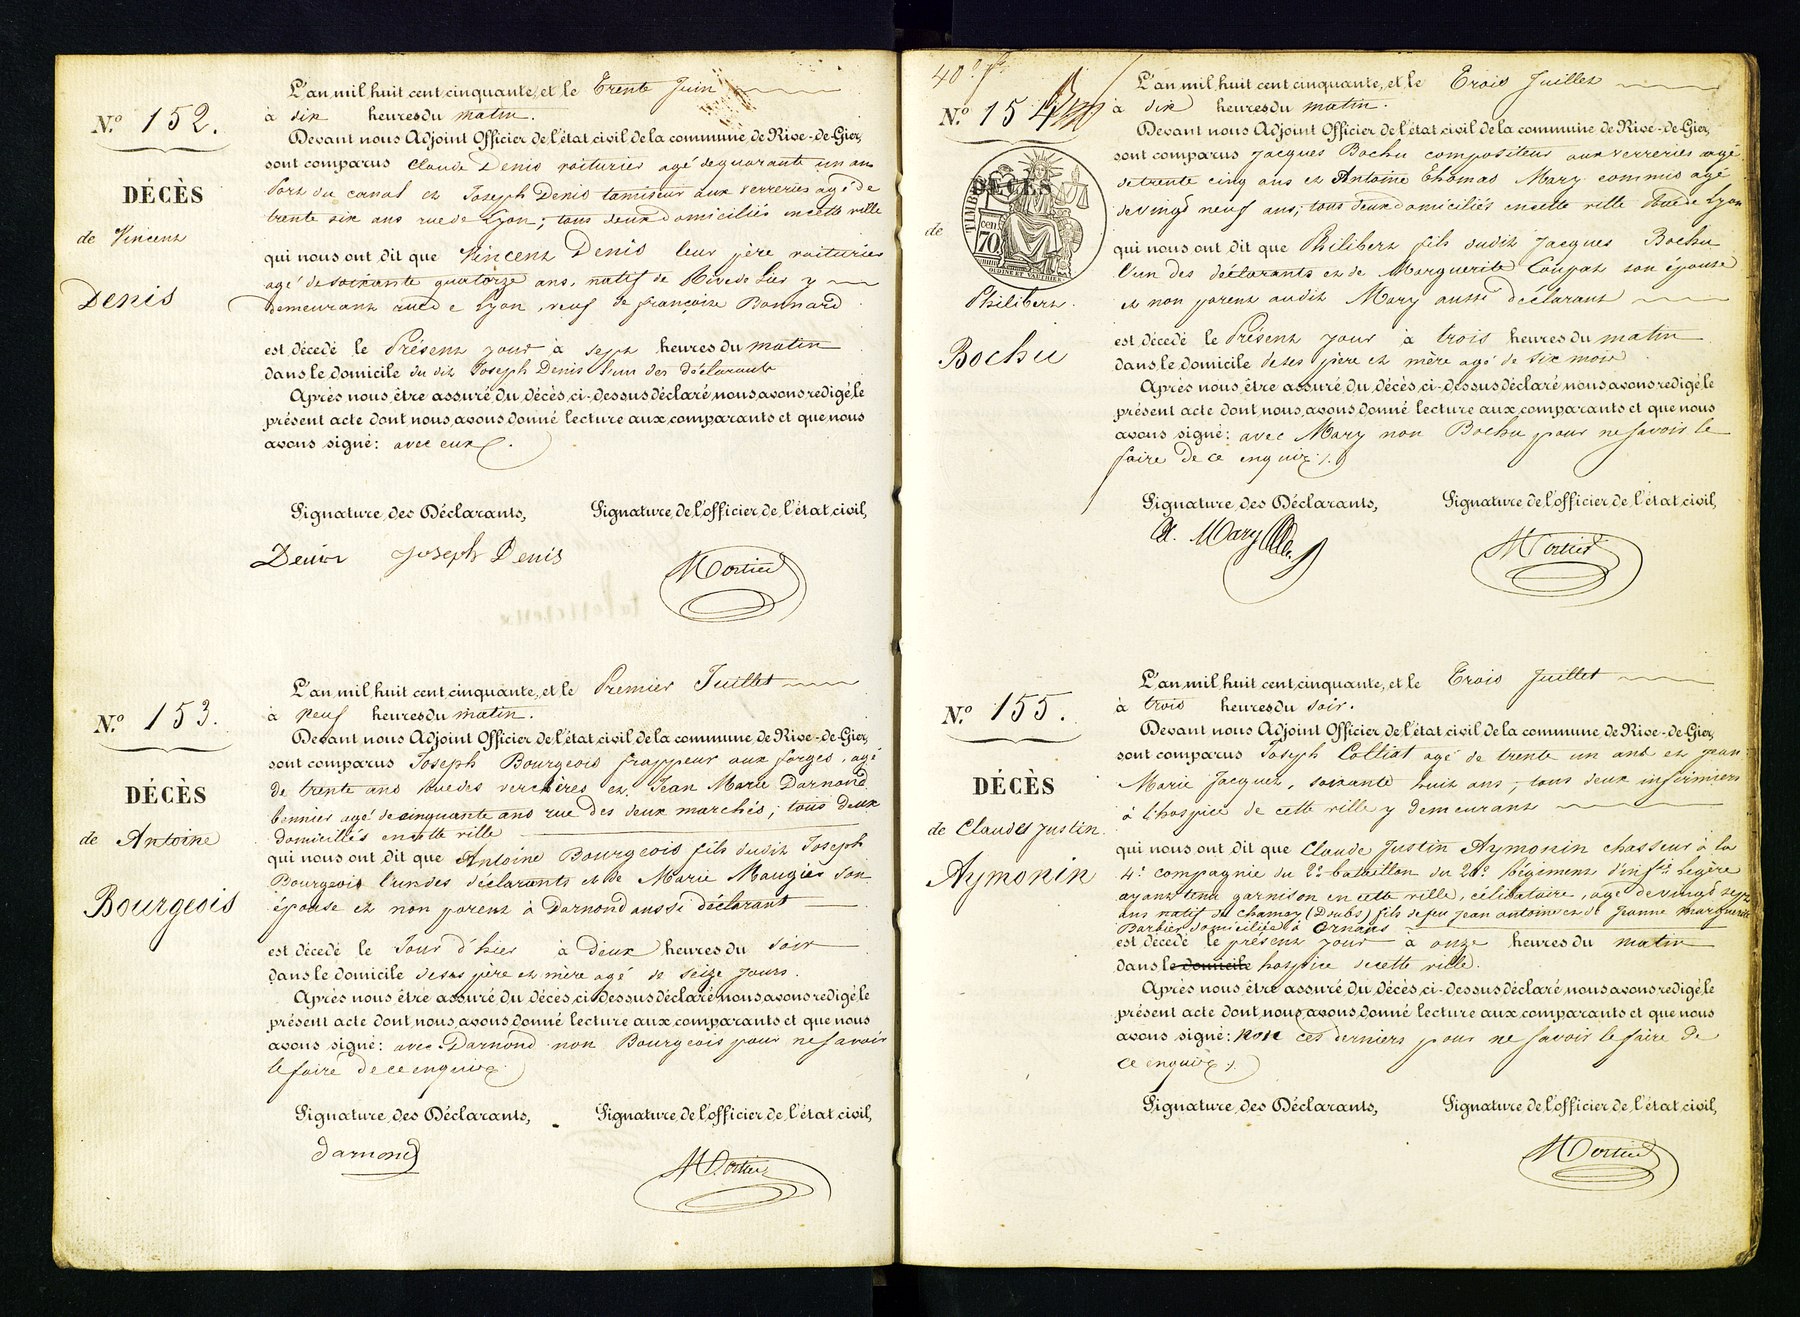 N.º 152.
DÉCÈS
de Vincent
Denis
L'an mil huit cent cinquante, et le Trente Juin
à dix heures du matin.
Devant nous Adjoint Officier de l'état civil de la commune de Rive-de-Gier,
sont comparus Claude Denis voiturier agé de quarante un ans
Port du canal et Joseph Denis tamiseur aux verreries agé de
trente six ans rue de Lyon; tous deux domiciliés en cette ville
qui nous ont dit que Vincent Denis leur père voiturier
agé de soixante quatorze ans, natif de Rive de Gier y
demeurant rue de Lyon, veuf de françoise Bonnard
est décédé le Présent jour à sept heures du matin
dans le domicile du dit Joseph Denis l'un des déclarants
Après nous être assuré du décès, ci-dessus déclaré nous avons redigé le
présent acte dont nous avons donné lecture aux comparants et que nous
avons signé: avec eux.
Signature des Déclarants, Signature de l'officier de l'état civil,
Denis Joseph Denis Mortier
N.º 153.
DÉCÈS
de Antoine
Bourgeois
L'an mil huit cent cinquante, et le Premier Juillet
à neuf heures du matin.
Devant nous Adjoint Officier de l'état civil de la commune de Rive-de-Gier,
sont comparus Joseph Bourgeois frappeur aux forges, agé
de trente ans rue des verchères et Jean Marie Darnond
bennier agé de cinquante ans rue des deux marchés; tous deux
domiciliés en cette ville
qui nous ont dit que Antoine Bourgeois fils dudit Joseph
Bourgeois l'un des déclarants et de Marie Maugier son
épouse et non parent à Darnond aussi déclarant
est décédé le Jour d'hier à deux heures du soir
dans le domicile de ses père et mère agé de seize jours.
Après nous être assuré du décès, ci-dessus déclaré nous avons redigé le
présent acte dont nous avons donné lecture aux comparants et que nous
avons signé: avec Darnond non Bourgeois pour ne savoir
le faire de ce enquis.
Signature des Déclarants, Signature de l'officier de l'état civil,
Darnond Mortier
40e
N.º 154
DÉCÈS
TIMBRE
cen 70
OUDINÉ ET VAUTHIER
de
Philibert
Bochu
L'an mil huit cent cinquante, et le Trois Juillet
à dix heures du matin.
Devant nous Adjoint Officier de l'état civil de la commune de Rive-de-Gier,
sont comparus Jacques Bochu compositeur aux verreries agé
de trente cinq ans et Antoine Thomas Mary commis agé
de vingt neuf ans, tous deux domiciliés en cette ville Rue de Lyon
qui nous ont dit que Philibert fils dudit Jacques Bochu
l'un des déclarants et de Marguerite Coupat son épouse
et non parent audit Mary aussi déclarant
est décédé le Présent jour à trois heures du matin
dans le domicile de ses père et mère agé de six mois
Après nous être assuré du décès, ci-dessus déclaré nous avons redigé le
présent acte dont nous avons donné lecture aux comparants et que nous
avons signé: avec Mary non Bochu pour ne savoir le
faire de ce enquis.
Signature des Déclarants, Signature de l'officier de l'état civil,
A. Mary Mortier
N.º 155.
DÉCÈS
de Claude Justin
Aymonin
L'an mil huit cent cinquante, et le Trois Juillet
à trois heures du soir.
Devant nous Adjoint Officier de l'état civil de la commune de Rive-de-Gier,
sont comparus Joseph Colliat agé de trente un ans et Jean
Marie Jacquet, soixante huit ans, tous deux infirmiers
à l'hospice de cette ville y demeurant
qui nous ont dit que Claude Justin Aymonin chasseur à la
4e compagnie du 2e bataillon du 20e Régiment d'inf.ie légère
ayant tenu garnison en cette ville, célibataire, agé de vingt sept
ans natif de chamay (Doubs) fils de feu jean antoine et de Jeanne marguerite
Barbier domiciliée à Ornans
est décédé le présent jour à onze heures du matin
dans le domicile hospice de cette ville.
Après nous être assuré du décès, ci-dessus déclaré nous avons redigé le
présent acte dont nous avons donné lecture aux comparants et que nous
avons signé: non ces derniers pour ne savoir le faire de
ce enquis.
Signature des Déclarants, Signature de l'officier de l'état civil,
Mortier